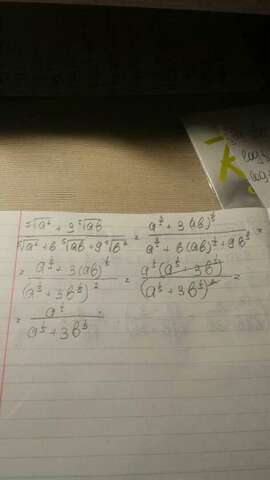 ⁵√a² + 3 ⁵√ab / ⁵√a² + 6 ⁵√ab + 9 ⁵√b² = a^(2/5) + 3(ab)^(1/5) / a^(2/5) + 6(ab)^(1/5) + 9b^(2/5) =
= a^(2/5) + 3(ab)^(1/5) / (a^(1/5) + 3b^(1/5))² = a^(1/5)(a^(1/5) + 3b^(1/5)) / (a^(1/5) + 3b^(1/5))² =
= a^(1/5) / a^(1/5) + 3b^(1/5)
log
log